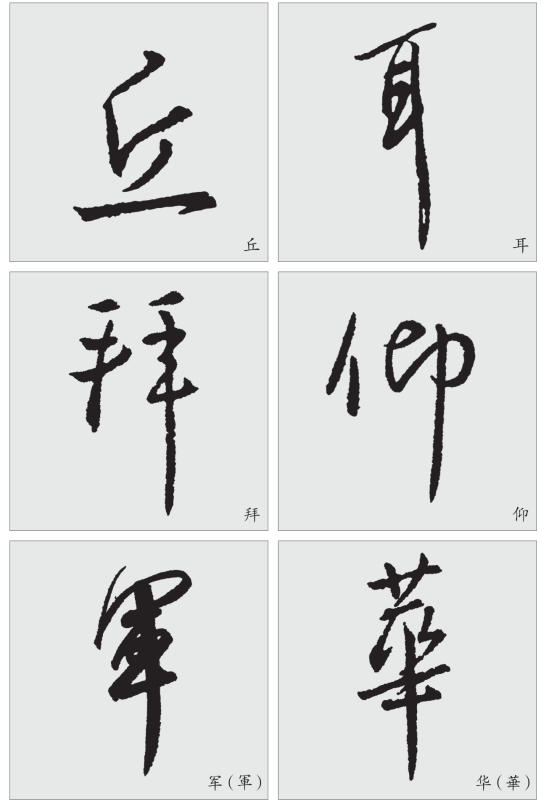 丘 耳
丘 耳
拜 仰
拜 仰
軍 華
军(軍) 华(華)